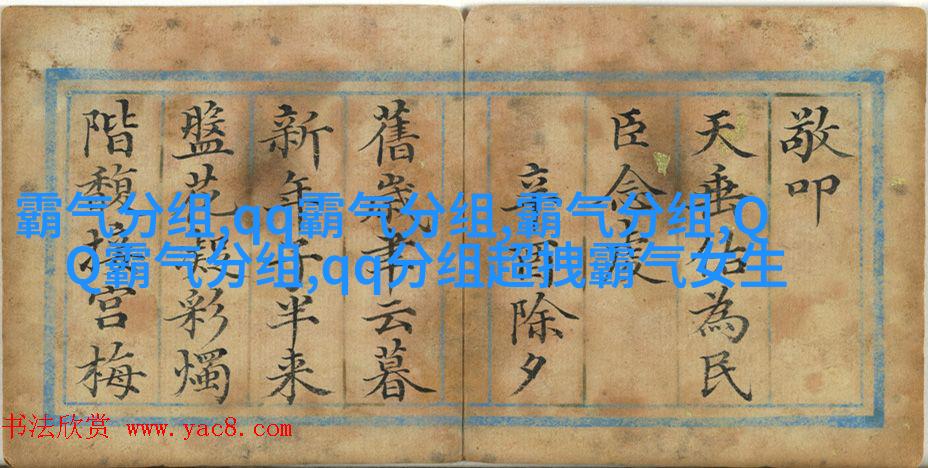 敬叩
天垂佑為民
臣念
辛酉除夕
舊歲聿云暮
新年子半来
盤花彩燭
階馥接宮梅
霸气分组,qq霸气分组,霸气分组,Q
Q霸气分组,qq分组超拽霸气女生
书法欣赏 www.yac8.com